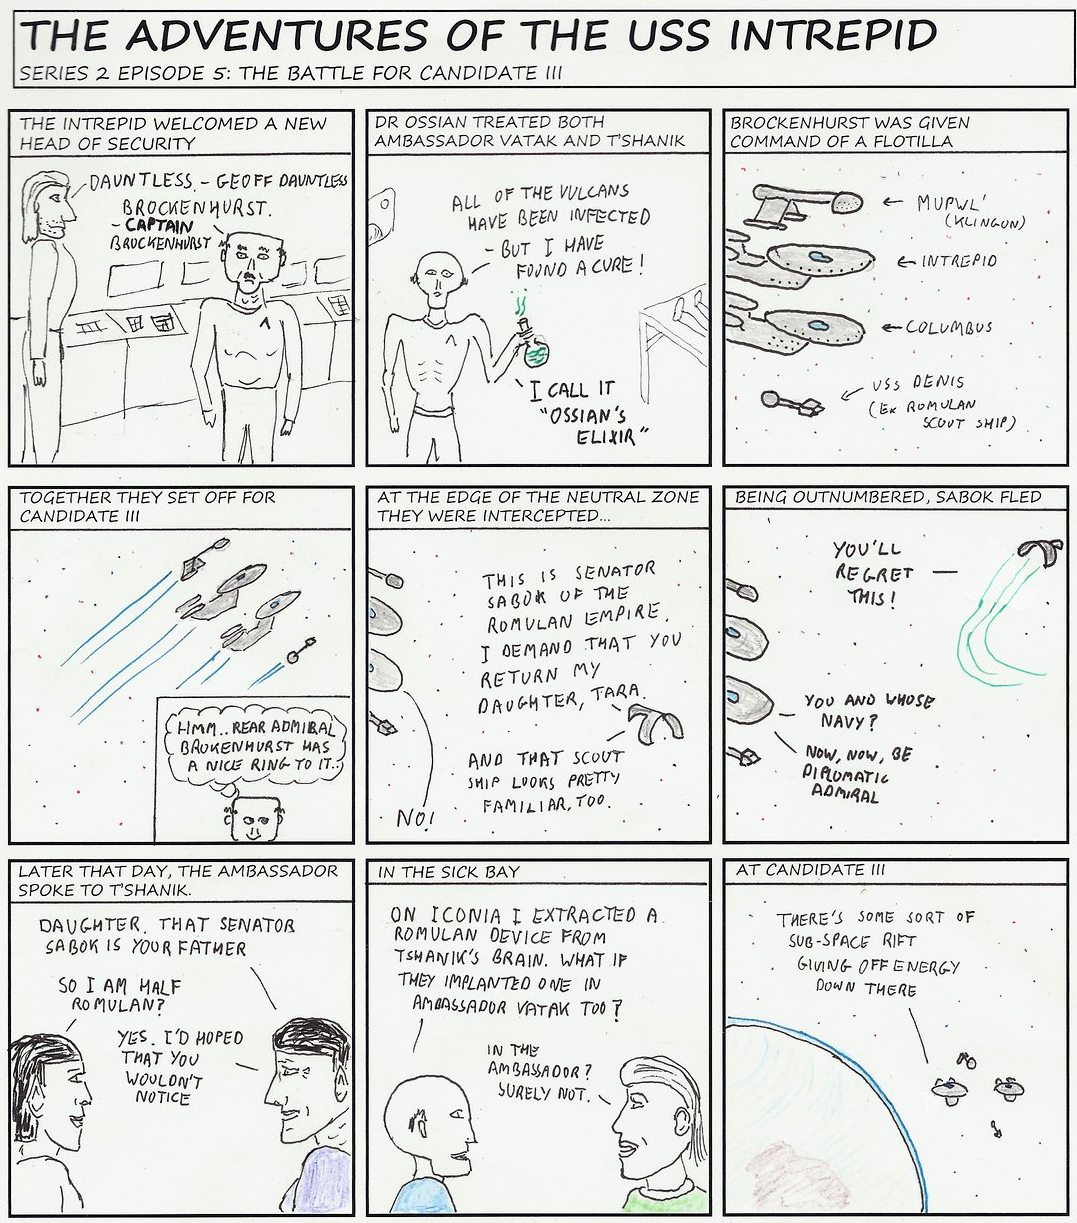 THE ADVENTURES OF THE USS INTREPID
SERIES 2 EPISODE 5: THE BATTLE FOR CANDIDATE III
THE INTREPID WELCOMED A NEW
HEAD OF SECURITY
DAUNTLESS. - GEOFF DAUNTLESS
BROCKENHURST.
- CAPTAIN
BROCKENHURST
DR OSSIAN TREATED BOTH
AMBASSADOR VATAK AND T'SHANIK
ALL OF THE VULCANS
HAVE BEEN INFECTED
- BUT I HAVE
FOUND A CURE!
I CALL IT
"OSSIAN'S
ELIXIR"
BROCKENHURST WAS GIVEN
COMMAND OF A FLOTILLA
MUPWL'
(KLINGON)
INTREPID
COLUMBUS
USS DENIS
(EX ROMULAN
SCOUT SHIP)
TOGETHER THEY SET OFF FOR
CANDIDATE III
HMM.. REAR ADMIRAL
BROKENHURST HAS
A NICE RING TO IT..
AT THE EDGE OF THE NEUTRAL ZONE
THEY WERE INTERCEPTED...
THIS IS SENATOR
SABOK OF THE
ROMULAN EMPIRE.
I DEMAND THAT YOU
RETURN MY
DAUGHTER, TARA.
AND THAT SCOUT
SHIP LOOKS PRETTY
FAMILIAR, TOO.
NO!
BEING OUTNUMBERED, SABOK FLED
YOU'LL
REGRET
THIS!
YOU AND WHOSE
NAVY?
NOW, NOW, BE
DIPLOMATIC
ADMIRAL
LATER THAT DAY, THE AMBASSADOR
SPOKE TO T'SHANIK.
DAUGHTER. THAT SENATOR
SABOK IS YOUR FATHER
SO I AM HALF
ROMULAN?
YES. I'D HOPED
THAT YOU
WOULDN'T
NOTICE
IN THE SICK BAY
ON ICONIA I EXTRACTED A
ROMULAN DEVICE FROM
TSHANIK'S BRAIN. WHAT IF
THEY IMPLANTED ONE IN
AMBASSADOR VATAK TOO?
IN THE
AMBASSADOR?
SURELY NOT.
AT CANDIDATE III
THERE'S SOME SORT OF
SUB-SPACE RIFT
GIVING OFF ENERGY
DOWN THERE